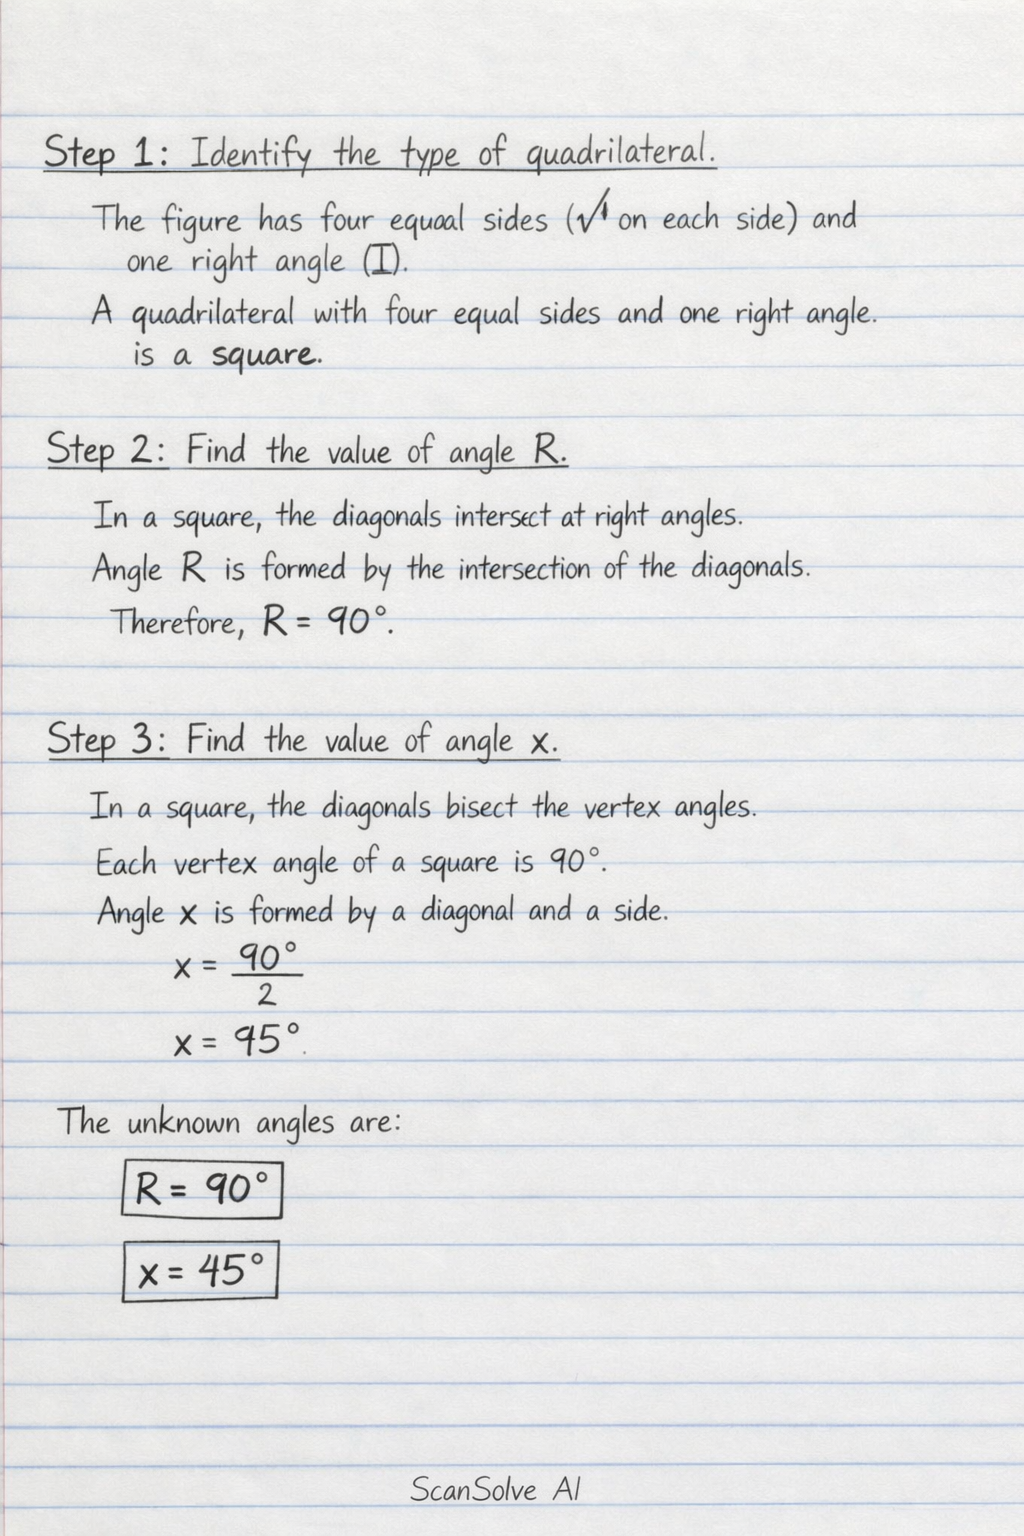 Step 1: Identify the type of quadrilateral.
The figure has four equaal sides (√ on each side) and
one right angle (I).
A quadrilateral with four equal sides and one right angle.
is a square.
Step 2: Find the value of angle R.
In a square, the diagonals intersect at right angles.
Angle R is formed by the intersection of the diagonals.
Therefore, R = 90°.
Step 3: Find the value of angle x.
In a square, the diagonals bisect the vertex angles.
Each vertex angle of a square is 90°.
Angle x is formed by a diagonal and a side.
x = 90°
2
x = 95°.
The unknown angles are:
R = 90°
x = 45°
ScanSolve AI